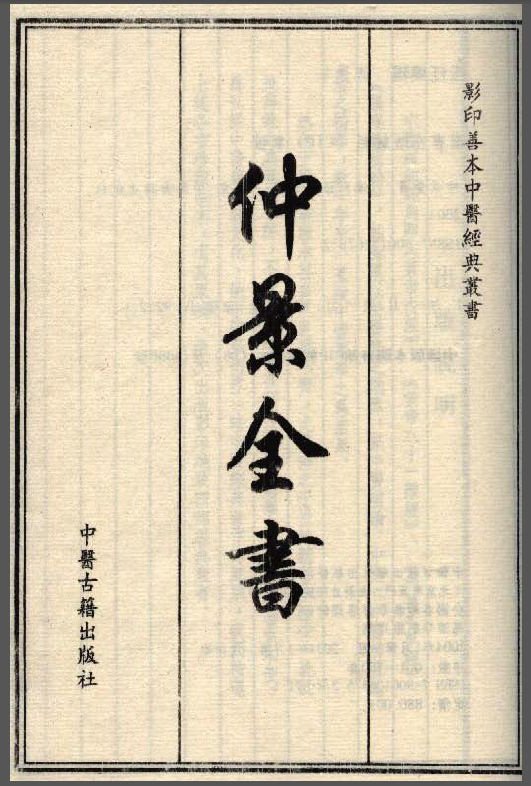 影印善本中醫經典叢書
仲景全書
中醫古籍出版社